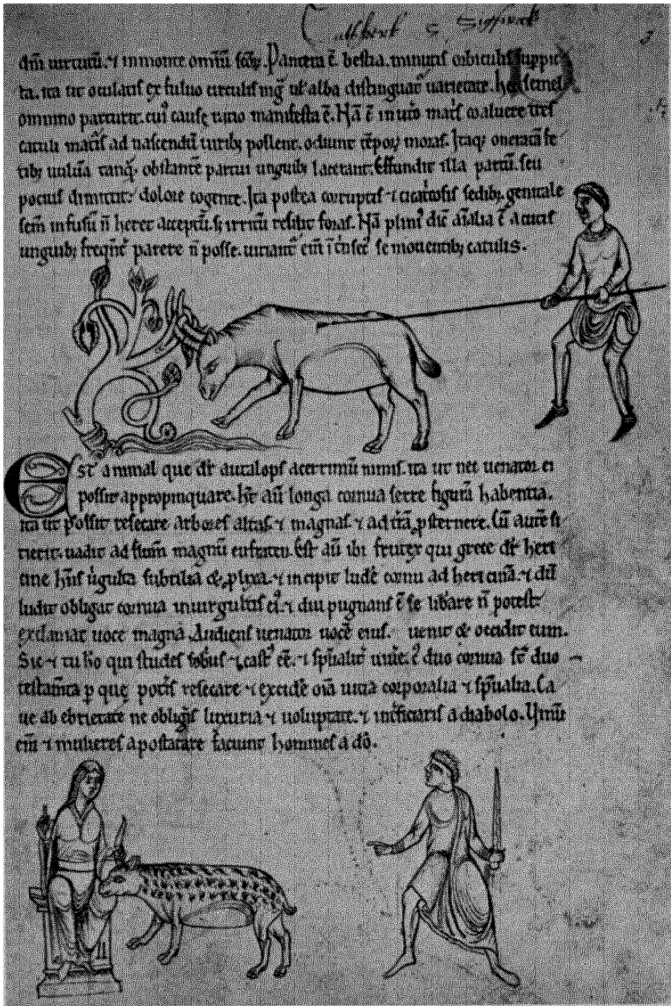 Cuthbert s
3
dm̄ uirtutū. ⁊ in monte om̄iū sc̄oꝝ. Pantera ē. bestia. minutis orbiculis suppic
ta. ita ut oculatis ex fuluo circulis nig̃ uł alba distinguat̃ uarietate. hec semel
omnino parturit. cuiꝰ cause ratio manifesta ē. Nā ē in utō mat̃s coaluere tres
catuli mat̃is ad nascendū uirib; pollent. odiunt tēpoꝝ moras. Itaq; oneratā fe
tib; uuluā tanq̃. obstante partui unguib; lacerant. Effundit illa partū. seu
pocius dimittit. dolore cogente. Ita postea corruptis ⁊ cicat̃cosis sedib;. genitale
sem̄ infusū n̄ heret acceptū. s; irritū resilit foras. Nā pliniꝰ dic̄ aīalia c̄ acutis
unguib; freq̄nt̃ parere n̄ posse. uitiant̃ em̄ īt̃nsec̃ se mouentib; catulis.
Est animal que dr̄ autalops acerrimū nimis. ita ut nec uenator ei
possit appropinquare. h̄t aū longa cornua serre figurā habentia.
ita ut possit resecare arbores altas. ⁊ magnas ⁊ ad t̃rā ꝓsternere. Cū autē si
tierit. uadit ad flum̄ magnū eufraten. Est aū ibi frutex qui grece dr̄ heri
cine hn̄s uirgulta subtilia & ꝓlixa. ⁊ incipit ludẽ cornu ad hericinā. ⁊ dū
ludit obligat cornua in uirgultis eiꝰ. ⁊ diu pugnans c̄ se lib̃are n̄ potest.
exclamat uoce magna. Audiens uenator uocē eius. uenit & occidit eum.
Sic ⁊ tu ho qui studes sobriꝰ ⁊ castꝰ ee. ⁊ sp̄ualit̃ uiuẽ. cꝰ duo cornua st̄ duo
testam̄ta p que potes resecare ⁊ excidẽ oīa uitia corporalia ⁊ sp̄ualia. Ca
ue ab ebrietate ne obligẽis luxuria ⁊ uoluptate. ⁊ int̃ficiaris a diabolo. Vinū
em̄ ⁊ mulieres apostatare faciunt homines a dō.